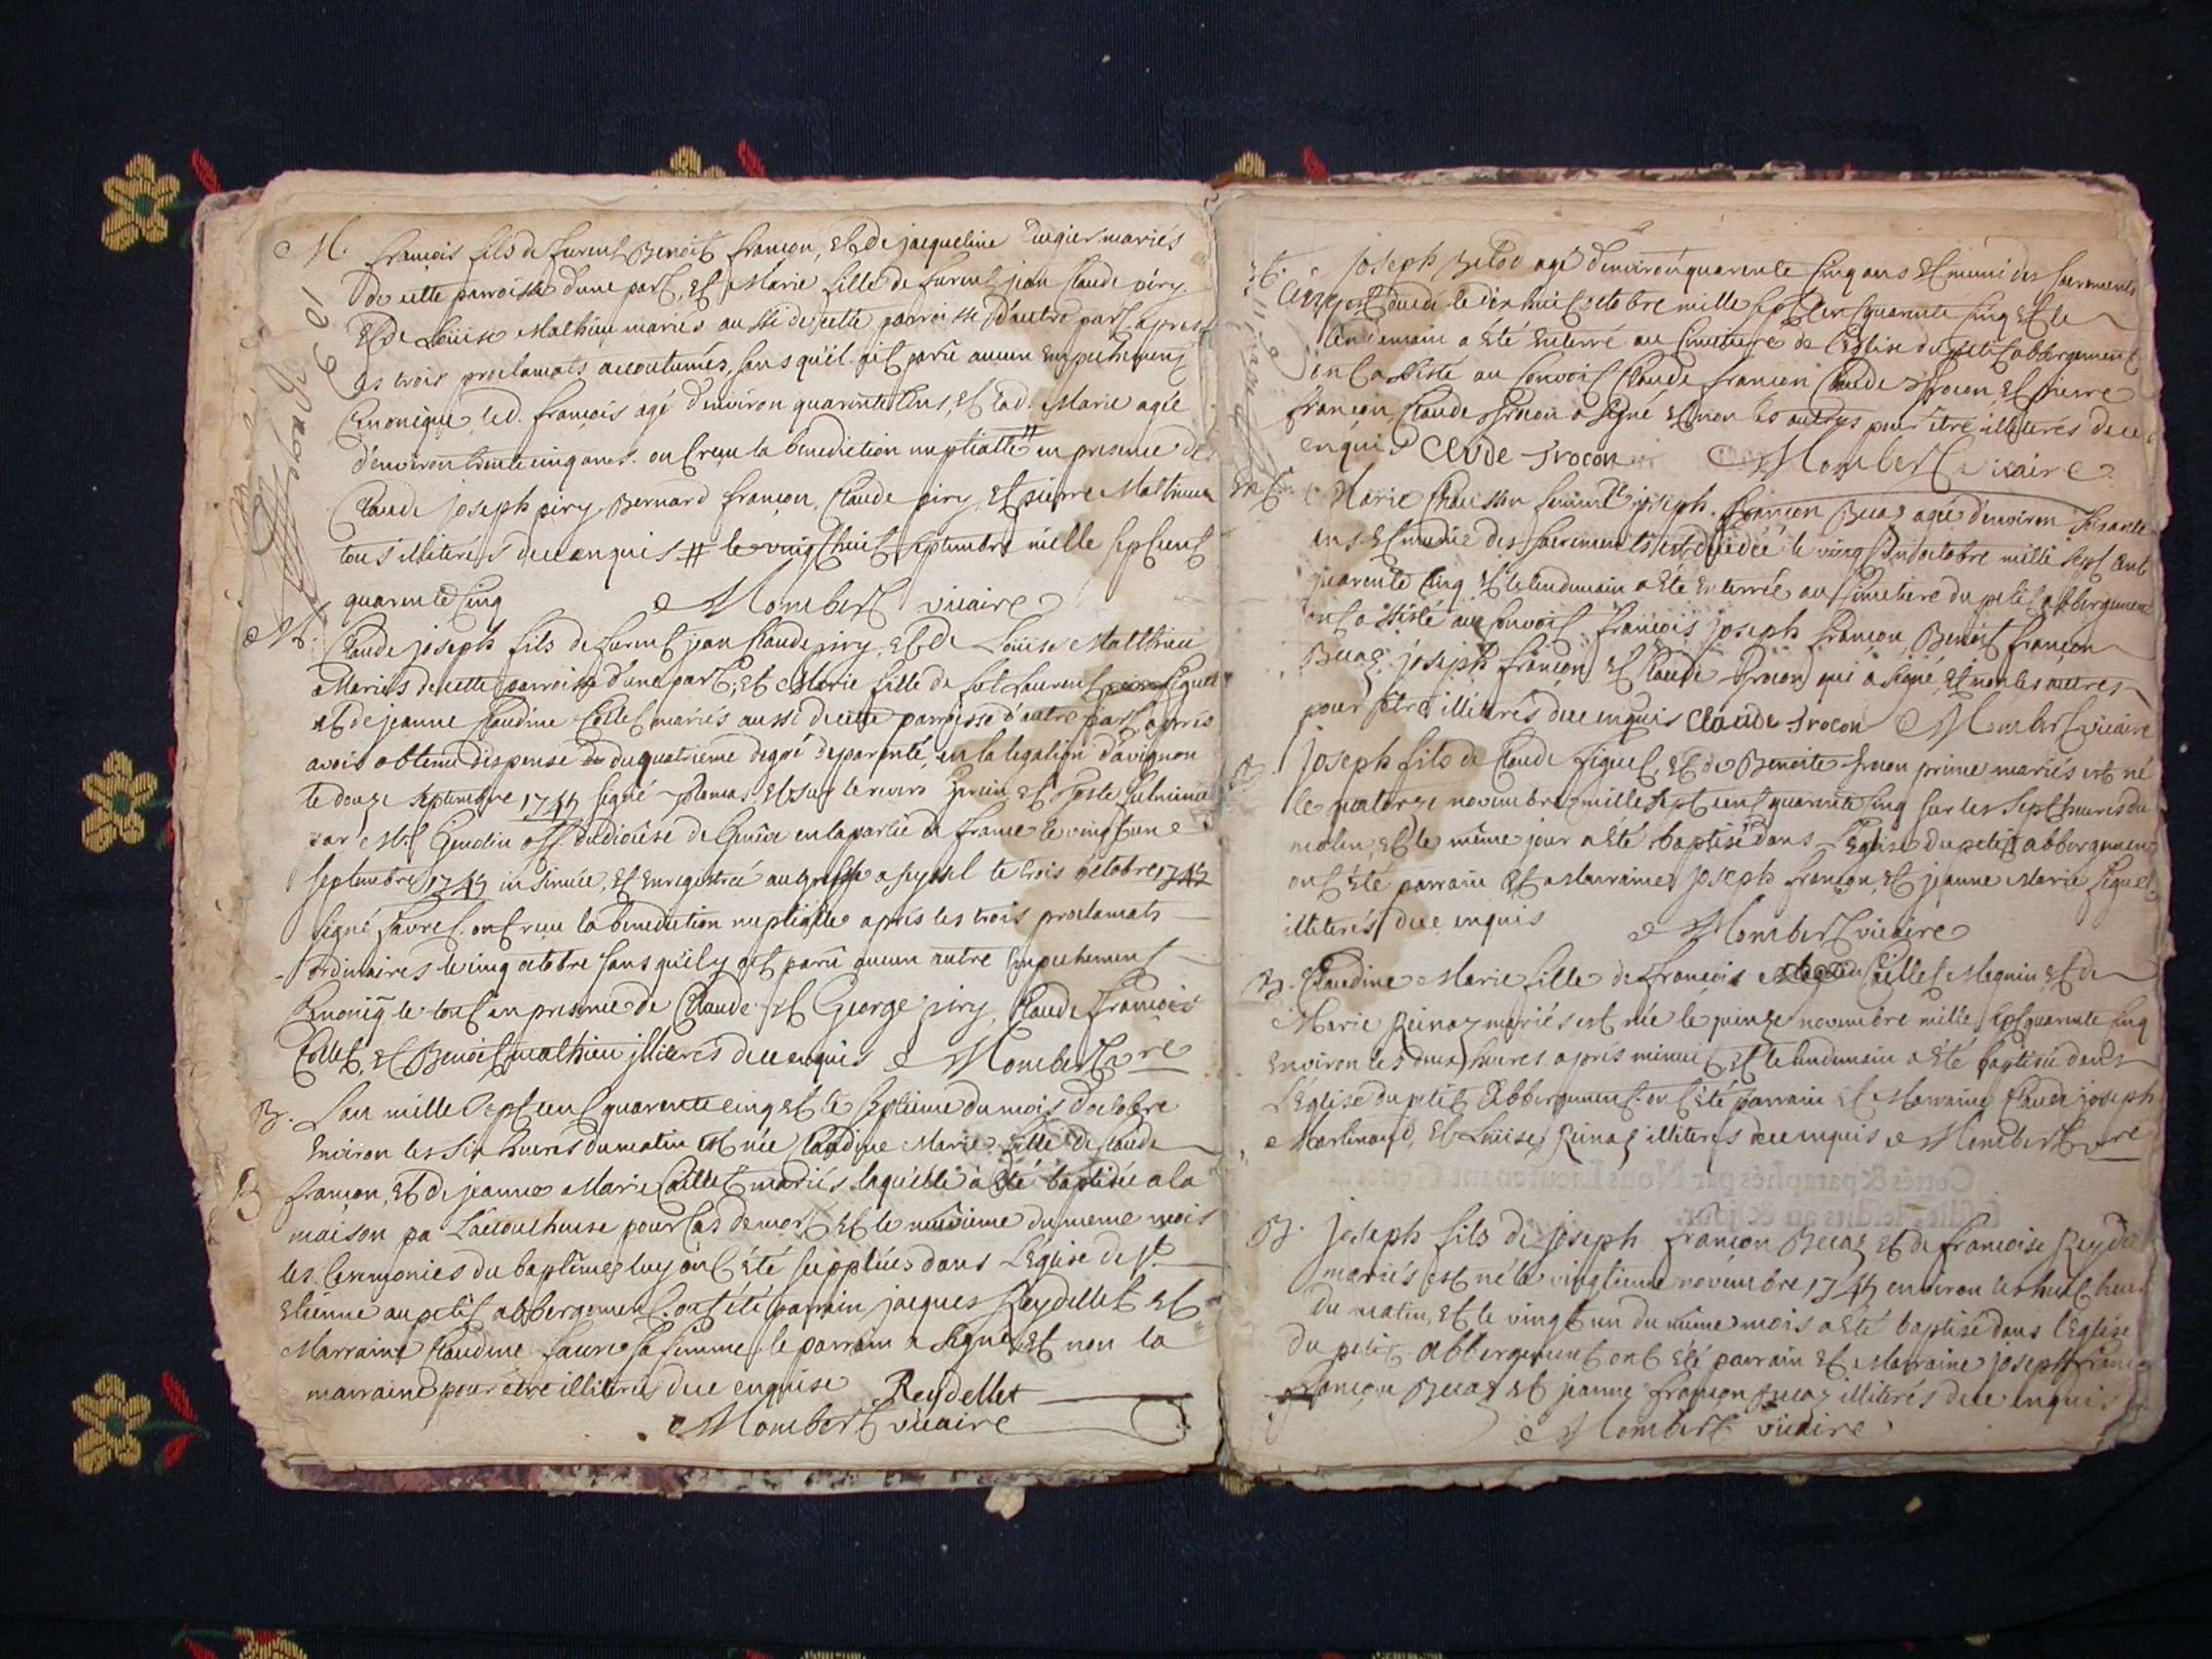 M. françois fils de furent Benoit françon, et de jacqueline mariés
de cette parroisse d'une part, et Marie fille de furent jean Claude piry
Et de Loüise Mathieu mariés aussi de cette parroisse d'autre part, apres
les trois proclamats accoutumés, sans qu'il ait parû aucun empechement
Canonique, led. françois agé d'environ quarente ans, et lad. Marie agée
d'environ trente cinq ans. ont reçu la benediction nuptialle # en presence de
Claude joseph piry Bernard françon, Claude piry, et pierre Mathieu
tous illiterés de ce enquis # le vingt huit septembre mille sept cent
quarente cinq Mombert vicaire
M. Claude joseph fils de furent jean Claude piry, et de Loüise Matthieu
Mariés de cette parroisse d'une part, et Marie fille de fut Laurent Figuet
et de jeanne Claudine Collet mariés aussi de cette parroisse d'autre part, aprés
avoir obtenu dispense du quatrieme degré de parenté, en la legation d'avignon
le douze septembre 1745 signé et sur le revers
par Mr. off. du diocèse de Genève en la partie de france le vingt une
septembre 1745 insinuée, et enregistrée au greffe a seyssel le trois octobre 1745
signé favre. ont reçu la benediction nuptialle aprés les trois proclamats
ordinaires le cinq octobre sans qu'il y ait parû aucun autre empechement
Canoniq. le tout en presence de Claude et George piry, Claude françois
Collet, et Benoit mathieu illiterés de ce enquis Mombert vre
B. L'an mille sept cent quarente cinq et le septieme du mois d'octobre
Environ les six heures du matin est née Claudine Marie fille de Claude
B françon, et de jeanne Marie Caillet mariés, laquelle à été baptisée a la
maison pa L'accoucheuse pour cas de mort et le neuvieme du meme mois
les Ceremonies du baptême luy ont été supplées dans L'Eglise de St.
Etienne au petit abbergement. ont été parrain jacques Reydellet et
Marraine Claudine favre sa femme. le parrain a signé, et non la
marraine pour être illiterée de ce enquise Reydellet
Mombert vicaire
joseph Belod agé d'environ quarente Cinq ans et muni des sacrements
est decédé le dix huit octobre mille sept cent quarente cinq et le
lendemain a été enterré au Cimetiere de l'Eglise du petit abbergement
ont assisté au Convoit Claude françon Claude frocon et pierre
françon, Claude frocon a signé et non les autres pour être illiterés de ce
enquis Clode Frocon Mombert vicaire
Marie Chausson femme de joseph françon Bucaz agée d'environ soixante
ans et munie des sacrements est decédée le vingt un octobre mille sept cent
quarente cinq et le lendemain a été enterrée au Cimetiere du petit abbergement
ont assisté au Convoit françois joseph françon, Benoit françon
Bucaz, joseph françon et Claude frocon qui a signé, et non les autres
pour être illiterés de ce enquis Claude Frocon Mombert vicaire
B. joseph fils de Claude Figuet, et de Benoite frocon prime mariés est né
le quatorze novembre mille sept cent quarente cinq sur les sept heures du
matin, et le même jour a été baptisé dans L'Eglise du petit abbergement
ont été parrain et Marraine joseph françon, et jeanne Marie Figuet
illiterés de ce enquis Mombert vicaire
B. Claudine Marie fille de françois Caillet Megnin et de
Marie Reinaz mariés est née le quinze novembre mille sept quarente cinq
environ les deux heures aprés minuit, et le lendemain a été baptisée dans
L'Eglise du petit Abbergement. ont été parrain et Marraine Claude joseph
Martinand, et Loüise Reinaz illiterés de ce enquis Mombert vre
B. joseph fils de joseph françon Bucaz et de françoise Reydel
mariés est né le vingtieme novembre 1745 environ les huit heur
du matin, et le vingt un du même mois a été baptisé dans l'Eglise
du petit abbergement ont été parrain et Marraine joseph
françon Bucaz et jeanne françon Bucaz illiterés de ce enquis
Mombert vicaire